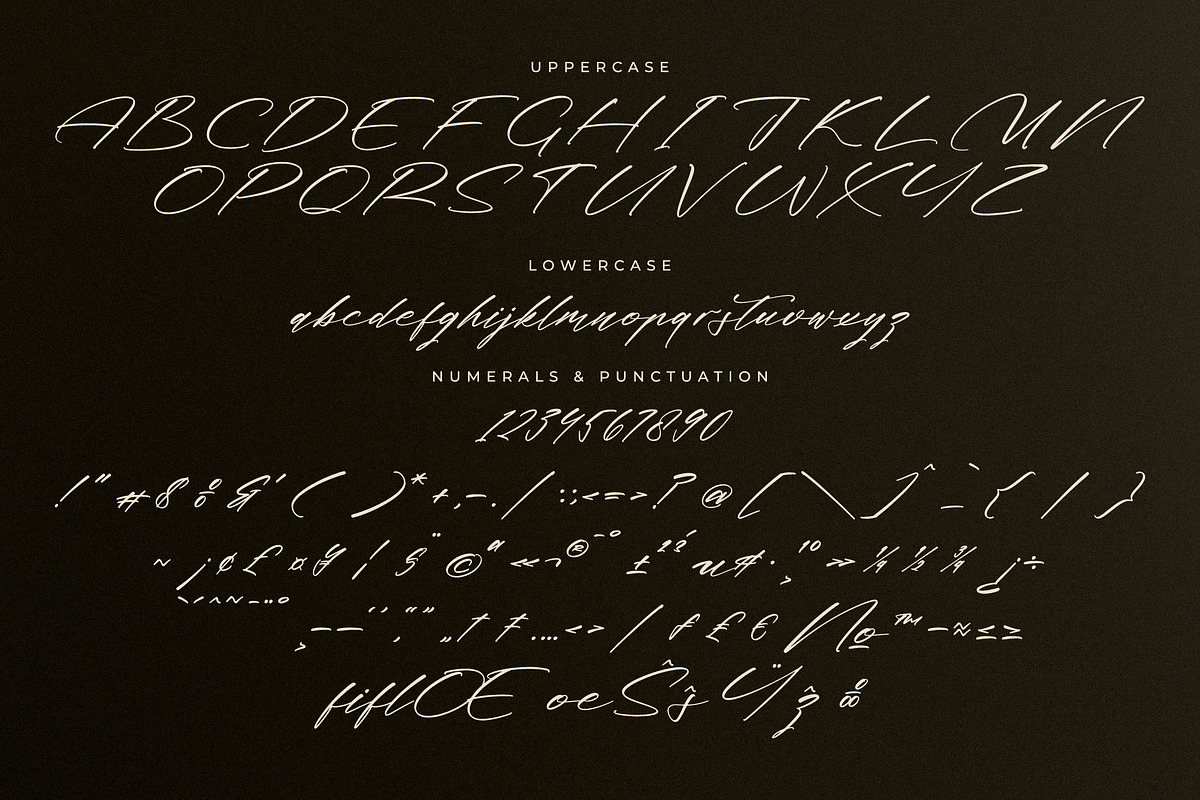 UPPERCASE
ABCDEFGHIJKLMN
OPQRSTUVWXYZ
LOWERCASE
abcdefghijklmnopqrstuvwxyz
NUMERALS & PUNCTUATION
1234567890
!"#$%&'()*+,-./:;<=>?@[\]^_`{|}
~¡¢£¤¥¦§¨©ª«¬®¯°±²³´µ¶·¸¹º»¼½¾¿÷
ˋˊˆ˜¯˙¨˚
–—‘’‚“”„†‡…‹›⁄ƒ₤€№™−≈≤≥
fiflŒœŠšŸž‰